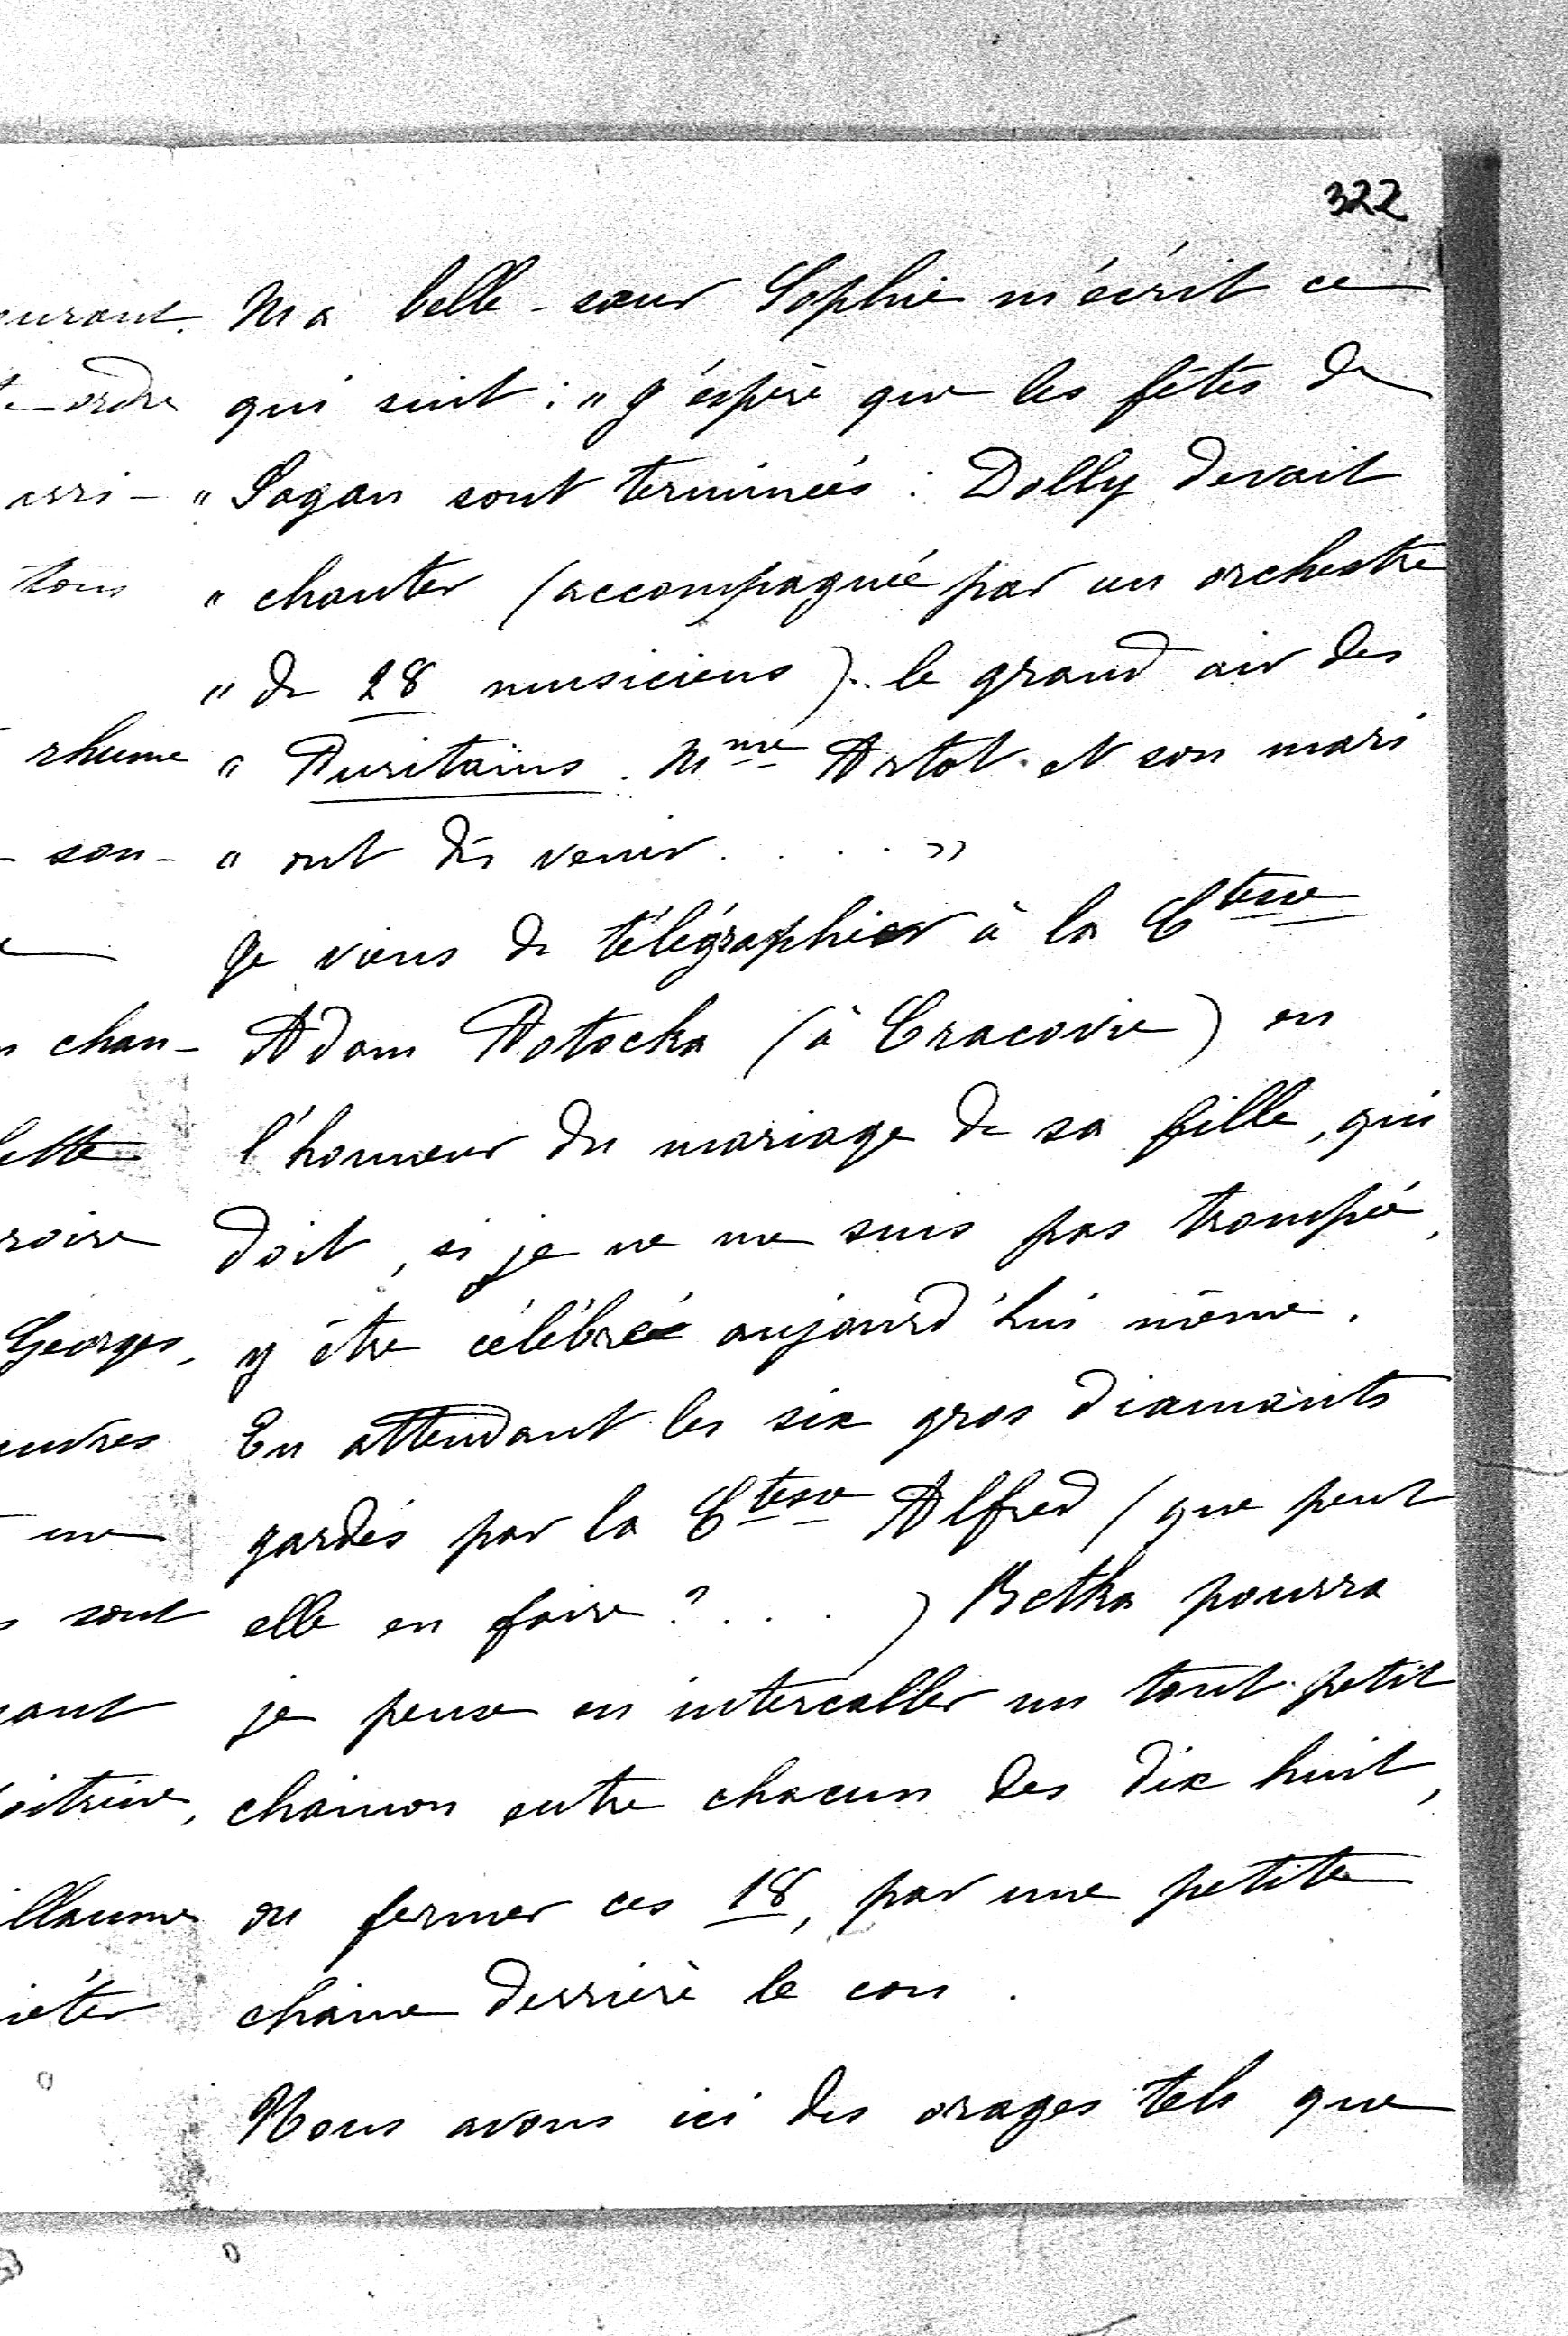 322
Ma belle-sœur Sophie m'écrit ce
qui suit : " J'éspère que les fêtes de
" Sagan sont terminées : Dolly devait
" chanter (accompagnée par un orchestre
" de 28 musiciens) le grand air des
" Puritains. Mme Artot et son mari
" ont dû venir . . . . "
Je viens de télégraphier à la Ctesse
Adam Potocka (à Cracovie) en
l'honneur du mariage de sa fille, qui
doit, si je ne me suis pas trompée,
y être célébré aujourd'hui même.
En attendant les six gros diamants
gardés par la Ctesse Alfred (que peut
elle en faire ? . . . ) Betka pourra
je pense en intercaller un tout petit
chainon entre chacun des dix huit,
ou fermer ces 18, par une petite
chaine derrière le cou.
Nous avons ici des orages tels que
ordre
rhume
son-
chan-
Georges,
sont